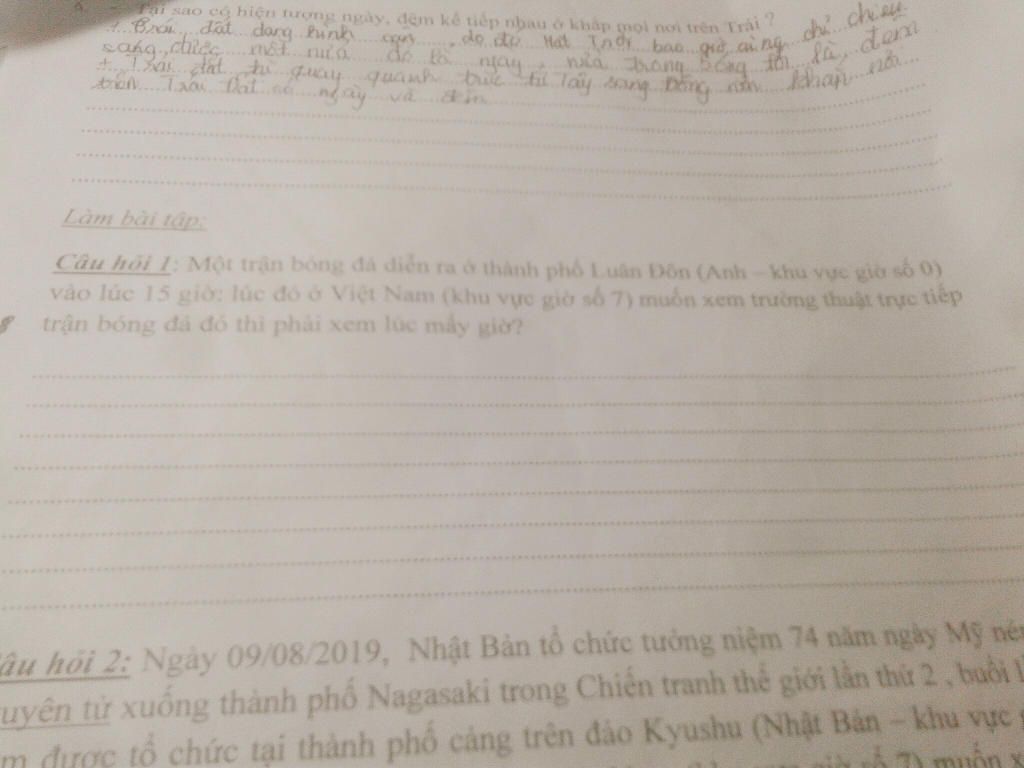 Tại sao có hiện tượng ngày, đêm kế tiếp nhau ở khắp mọi nơi trên Trái ?
+ Trái đất dạng hình cầu, do đó Mặt Trời bao giờ cũng chỉ chiếu
sáng được một nửa đó là ngày, nửa trong bóng tối là đêm
+ Trái đất tự quay quanh trục từ Tây sang Đông nên khắp nơi
trên Trái Đất có ngày và đêm
Làm bài tập:
Câu hỏi 1: Một trận bóng đá diễn ra ở thành phố Luân Đôn (Anh – khu vực giờ số 0)
vào lúc 15 giờ: lúc đó ở Việt Nam (khu vực giờ số 7) muốn xem trường thuật trực tiếp
trận bóng đá đó thì phải xem lúc mấy giờ?
âu hỏi 2: Ngày 09/08/2019, Nhật Bản tổ chức tưởng niệm 74 năm ngày Mỹ ném
uyên tử xuống thành phố Nagasaki trong Chiến tranh thế giới lần thứ 2 , buổi l
m được tổ chức tại thành phố cảng trên đảo Kyushu (Nhật Bản – khu vực
giờ số 7) muốn x